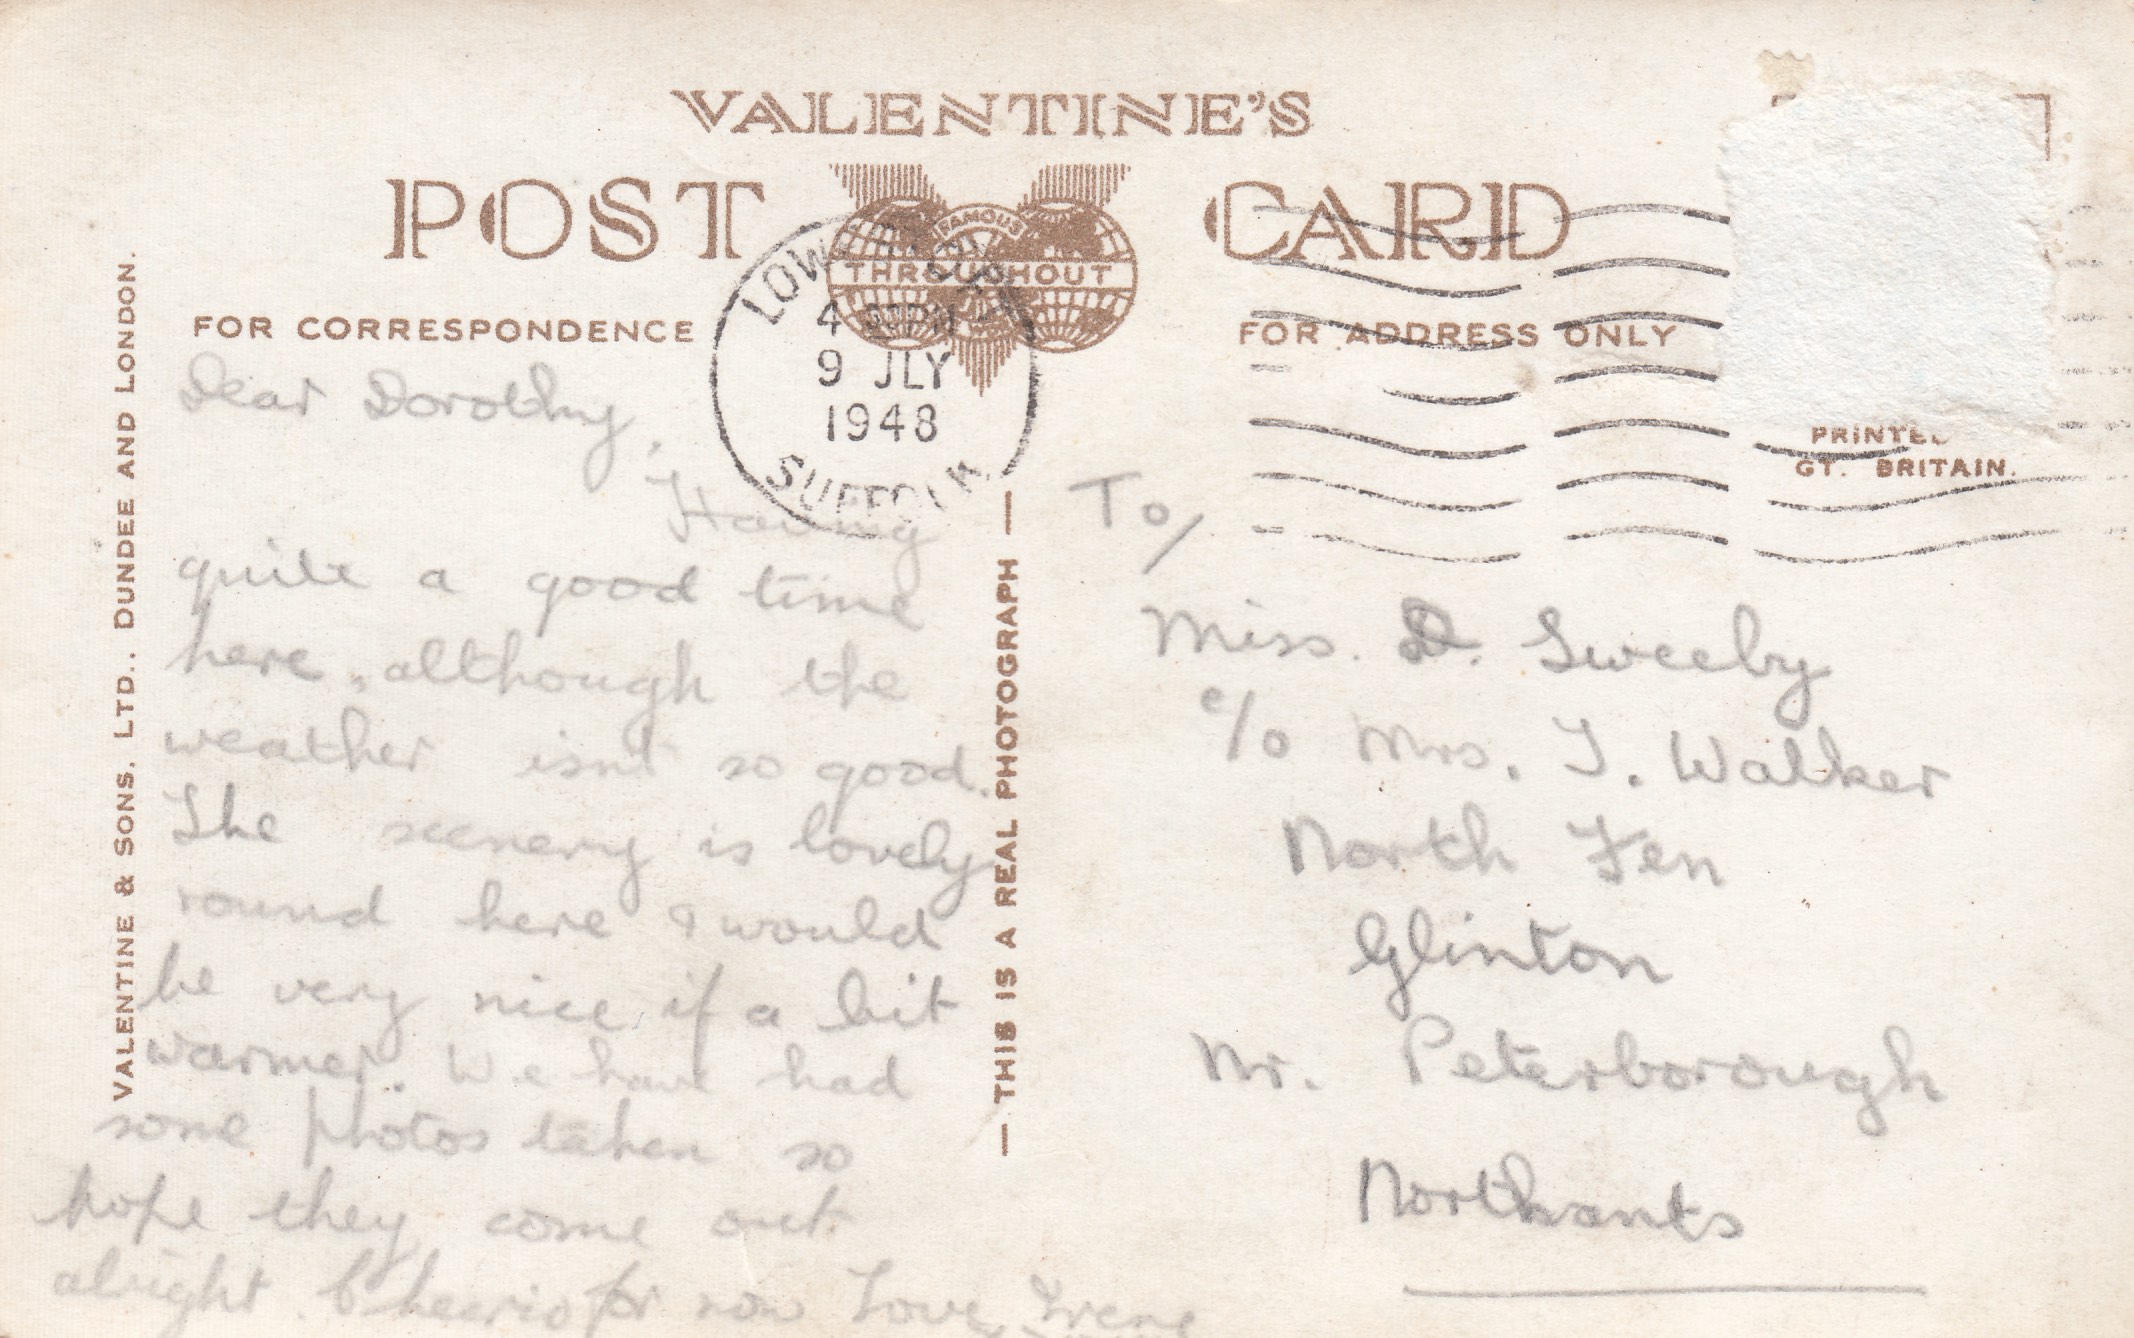 VALENTINE'S
POST CARD
FAMOUS
THROUGHOUT
FOR CORRESPONDENCE
FOR ADDRESS ONLY
PRINTED
GT. BRITAIN.
LOWESTOFT
4 PM
9 JLY
1948
SUFFOLK
VALENTINE & SONS, LTD., DUNDEE AND LONDON.
— THIS IS A REAL PHOTOGRAPH —
Dear Dorothy,
Having
quite a good time
here, although the
weather isnt so good.
The scenery is lovely
round here & would
be very nice if a bit
warmer. We have had
some photos taken so
hope they come out
alright. Cheerio for now Love, Irene
To/
Miss. D. Sweeby
c/o Mrs. J. Walker
North Fen
Glinton
Nr. Peterborough
Northants